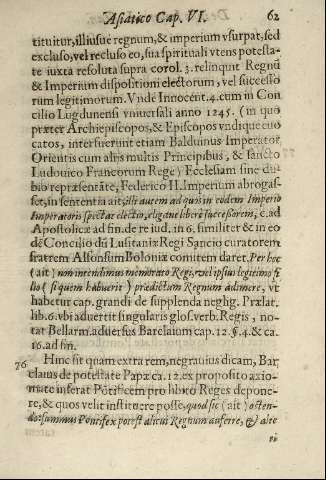 Asiatico Cap. VI. 62
tituitur, illiusue regnum, & imperium vsurpat, sed
excluso, vel recluso eo, sua spirituali vtens potesta-
te iuxta resoluta supra corol. 3. relinquit Regnũ
& Imperium dispositioni electorum, vel successo
rum legitimorum. Vnde Innocent. 4. cum in Con
cilio Lugdunensi vniuersali anno 1245. (in quo
præter Archiepiscopos, & Episcopos vndique euo
catos, interfuerunt etiam Balduinus Imperator
Orientis cum alijs multis Principibus, & sancto
Ludouico Francorum Rege) Ecclesiam sine du-
bio repræsentãte, Federico II. Imperium abrogas-
set, in sententia ait, illi autem ad quos in eodem Imperio
Imperatoris spectat electio, eligant liberè successorem, c. ad
Apostolicæ ad fin. de re iud. in 6. similiter & in eo
dẽ Concilio dũ Lusitaniæ Regi Sancio curatorem
fratrem Alfonsum Boloniæ comitem daret. Per hoc
(ait) non intendimus memorato Regi, vel ipsius legitimo fi
lio (si quem habuerit) prædictum Regnum adimere, vt
habetur cap. grandi de supplenda neglig. Prælat.
lib. 6. vbi aduertit singularis glos. verb. Regis, no-
tat Bellarm. aduersus Barclaium cap. 12. §. 4. & ca.
16. ad fin.
76 Hinc sit quam extra rem, ne grauius dicam, Bar
claius de potestate Papæ ca. 12. ex proposito axio-
mate inferat Põtificem pro libito Reges depone-
re, & quos velit instituere posse, quod sic (ait) osten-
do: summus Pontifex potest alicui Regnum auferre, & alte
ri